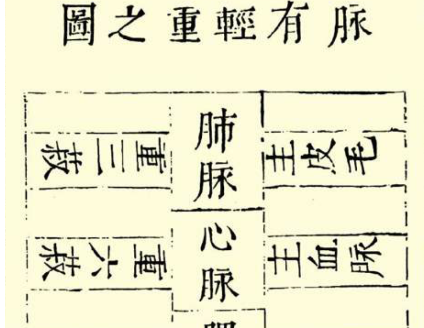 脉有輕重之圖
肺脉
主皮毛
重三菽
心脉
主血脉
重六菽